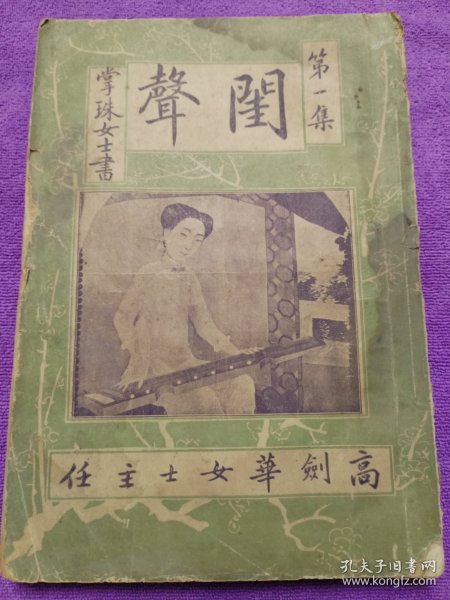 第一集
閨聲
掌珠女士書
高劍華女士主任
孔夫子旧书网
www.kongfz.com